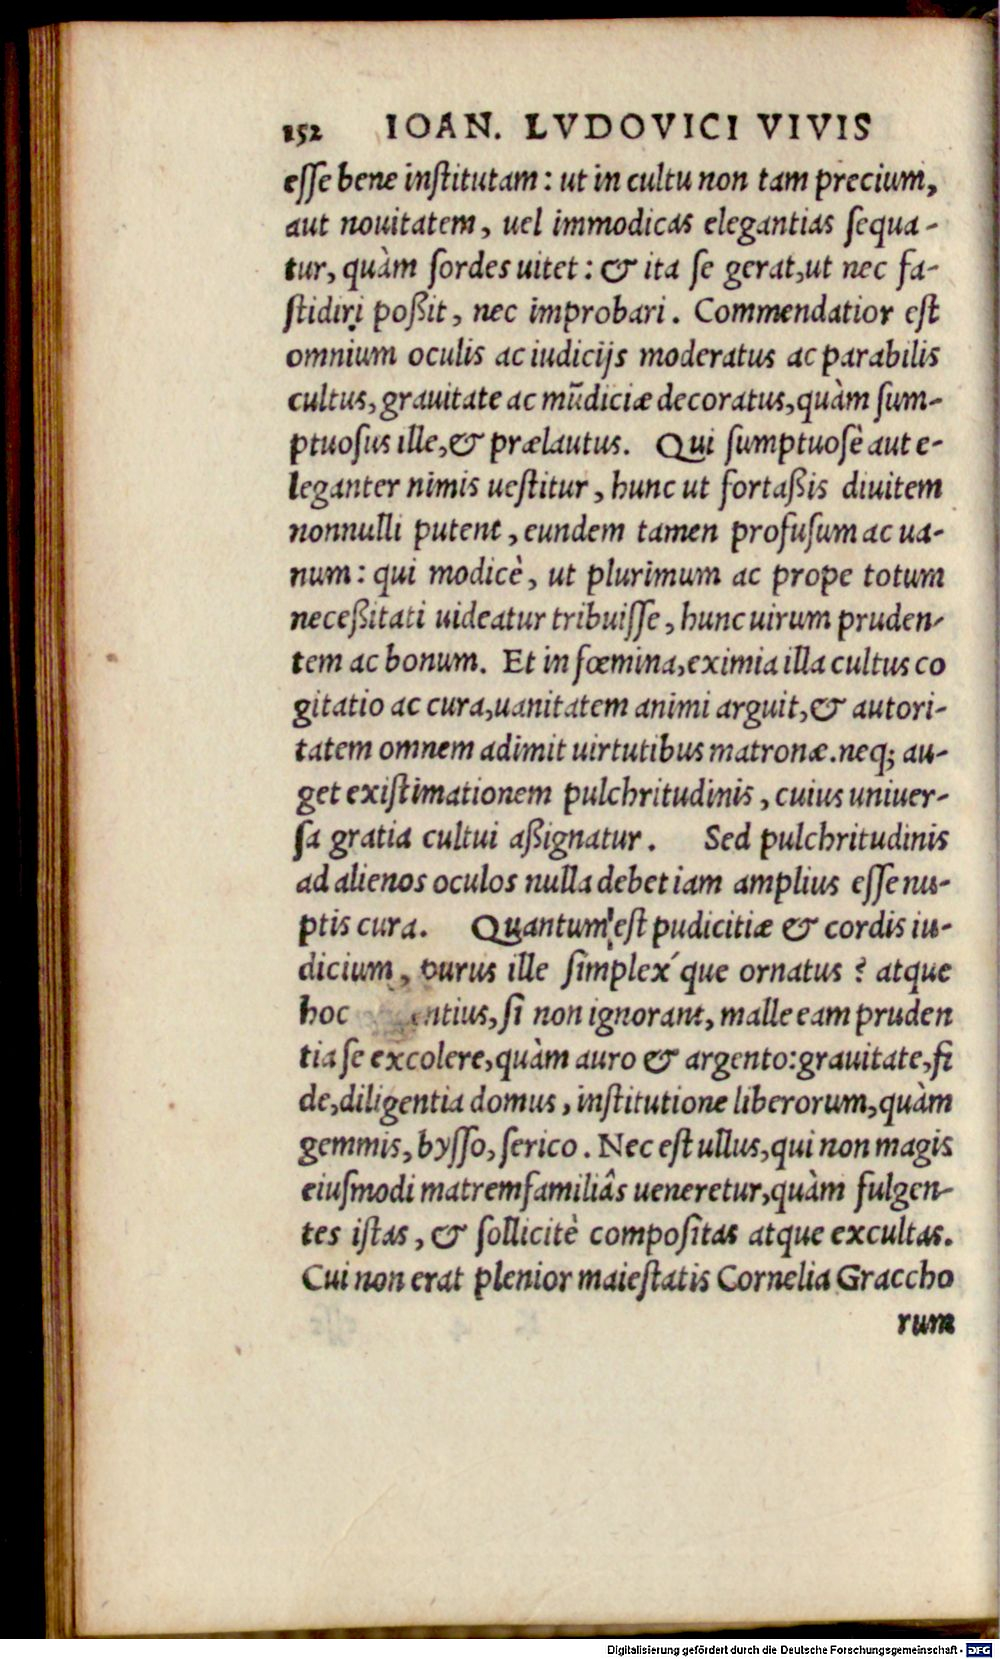 152 IOAN. LVDOVICI VIVIS
eſſe bene inſtitutam: ut in cultu non tam precium,
aut nouitatem, uel immodicas elegantias ſequa-
tur, quàm ſordes uitet: & ita ſe gerat, ut nec fa-
ſtidiri poßit, nec improbari. Commendatior eſt
omnium oculis ac iudicijs moderatus ac parabilis
cultus, grauitate ac mūdiciæ decoratus, quàm ſum-
ptuoſus ille, & prælautus. Qui ſumptuoſè aut e-
leganter nimis ueſtitur, hunc ut fortaßis diuitem
nonnulli putent, eundem tamen profuſum ac ua-
num: qui modicè, ut plurimum ac prope totum
neceßitati uideatur tribuiſſe, hunc uirum pruden-
tem ac bonum. Et in fœmina, eximia illa cultus co
gitatio ac cura, uanitatem animi arguit, & autori-
tatem omnem adimit uirtutibus matronæ. neq; au-
get exiſtimationem pulchritudinis, cuius uniuer-
ſa gratia cultui aßignatur. Sed pulchritudinis
ad alienos oculos nulla debet iam amplius eſſe nu-
ptis cura. Quantum eſt pudicitiæ & cordis iu-
dicium, purus ille ſimplex´que ornatus? atque
hoc entius, ſi non ignorant, malle eam pruden
tia ſe excolere, quàm auro & argento: grauitate, fi
de, diligentia domus, inſtitutione liberorum, quàm
gemmis, byſſo, ſerico. Nec eſt ullus, qui non magis
eiuſmodi matremfamiliâs ueneretur, quàm fulgen-
tes iſtas, & ſollicitè compoſitas atque excultas.
Cui non erat plenior maieſtatis Cornelia Graccho
rum
Digitalisierung gefördert durch die Deutsche Forschungsgemeinschaft - DFG